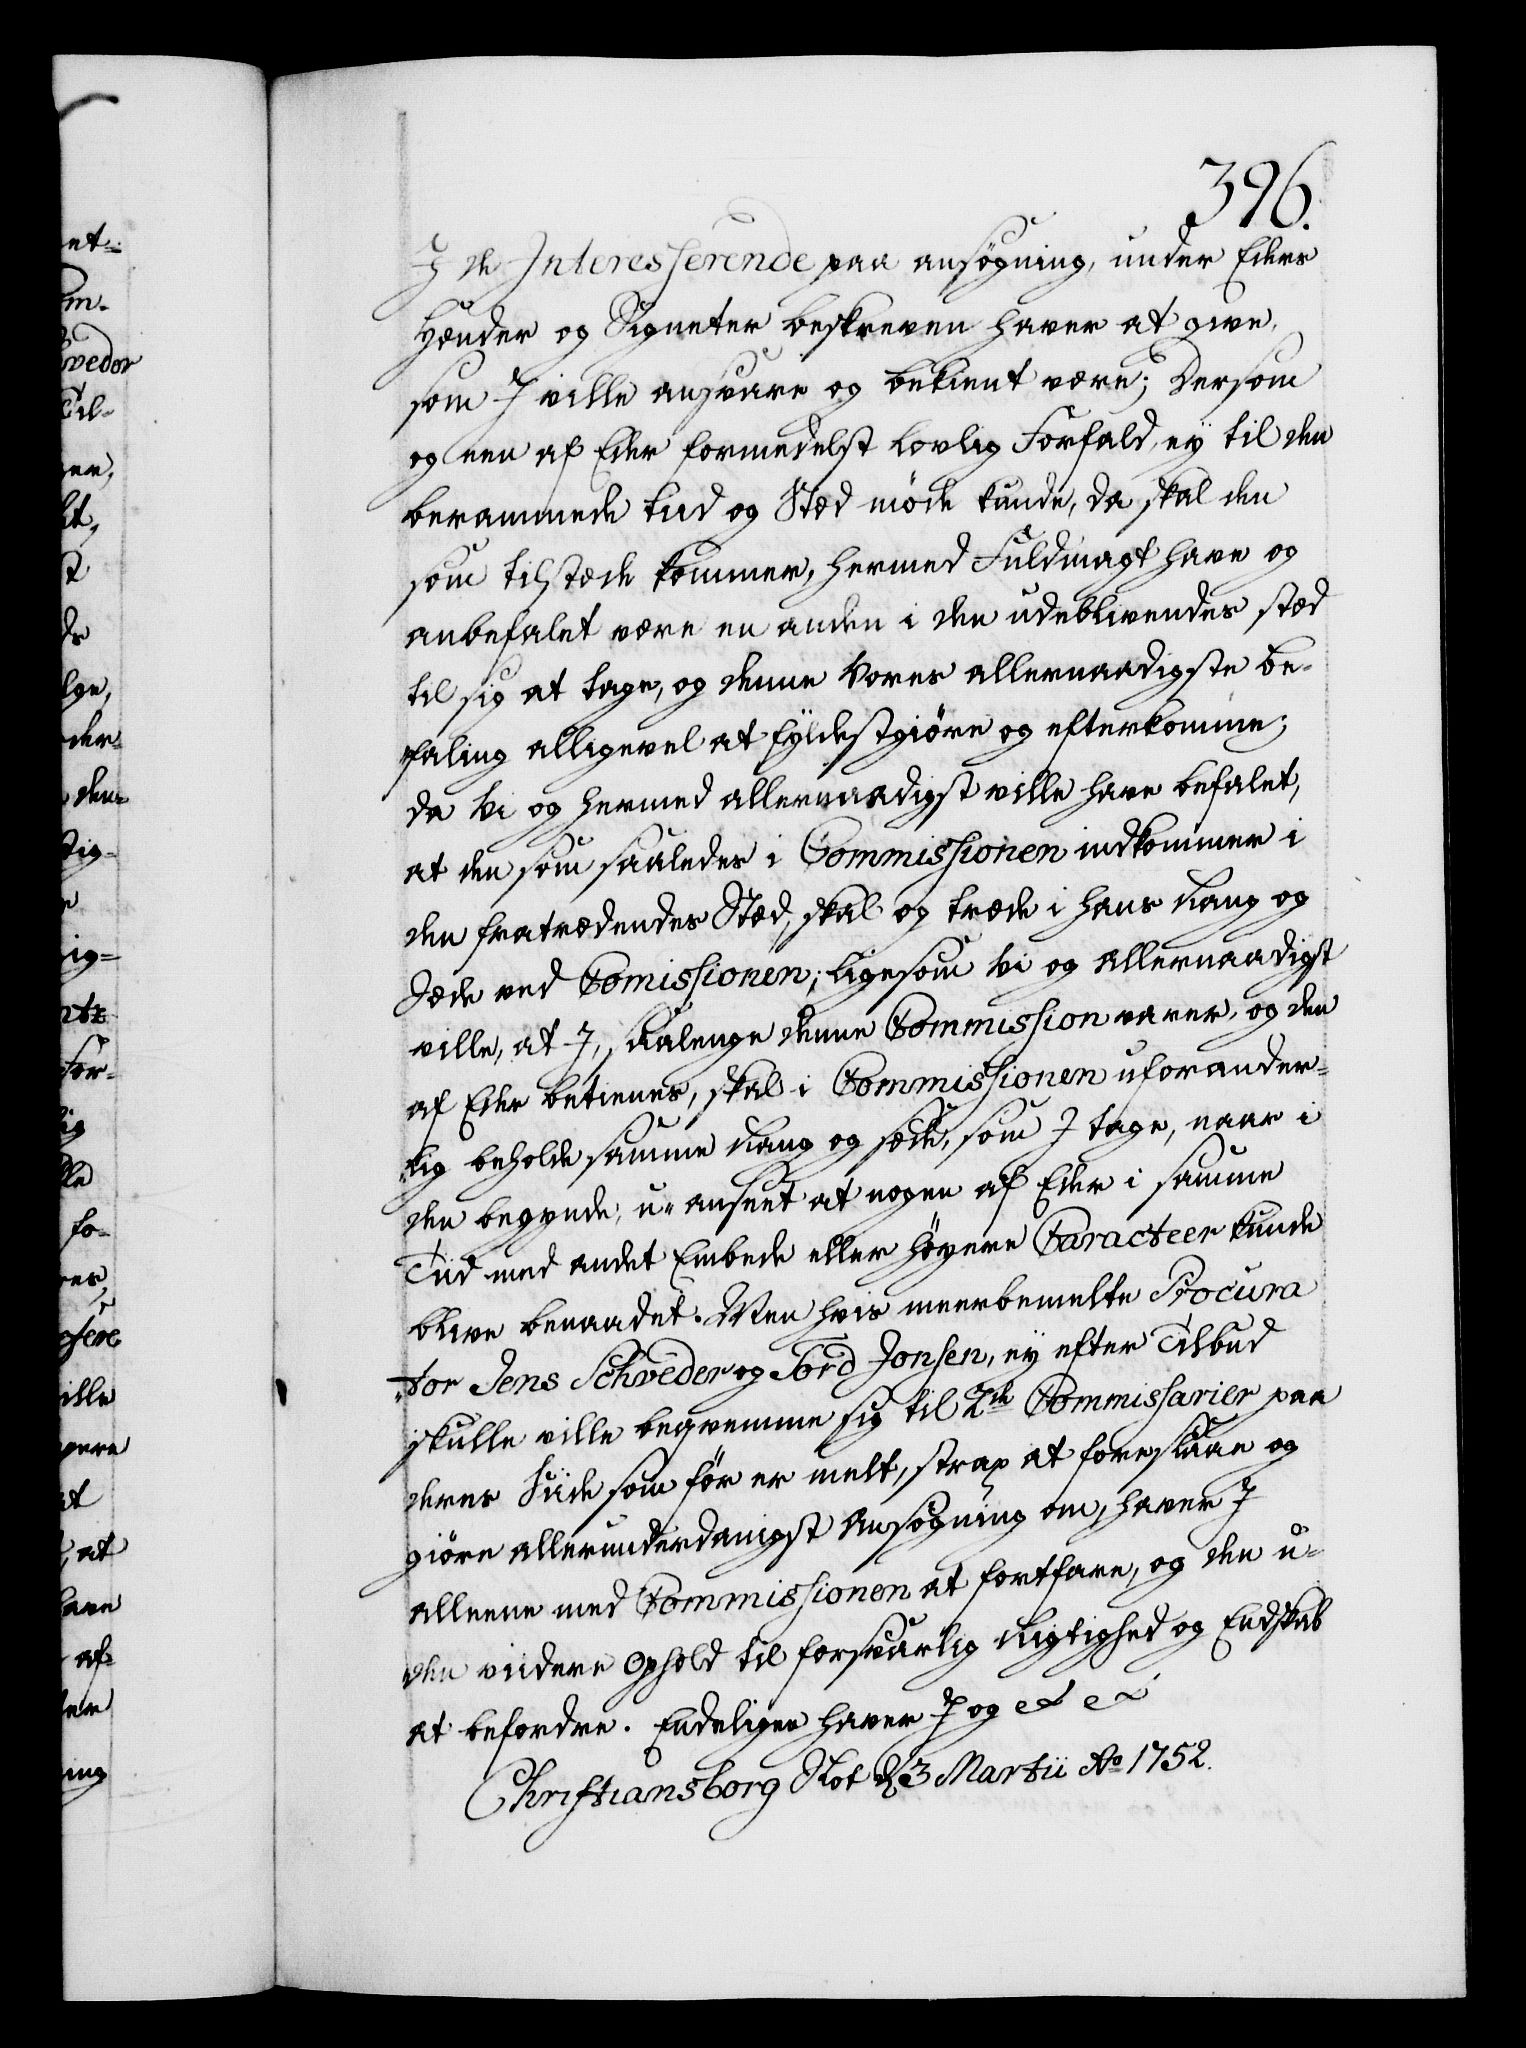 396.
I de Interesserende paa ansøgning, under Eders
Hænder og Signeter beskreven haver at give,
som I ville ansvare og bekient være; Dersom
og een af Eder formedelst Lovlig Forfald, ey til den
berammede tiid og Stæd møde kunde, da skal den
som tilstæde kommer, hermed Fuldmagt have og
anbefalet være en anden i den udeblivendes stæd
til sig at tage, og denne Vores allernaadigste be-
faling alligevel at fyldestgiøre og efterkomme;
da Vi og hermed allernaadigst ville have befalet,
at den som saaledes i Commissionen indkommer i
den fratrædendes Stæd, skal og træde i hans Rang og
Sæde ved Comissionen; ligesom Vi og Allernaadigst
ville, at I, saalenge denne Commission varer, og den
af Eder betienes, skal i Commissionen uforander-
lig beholde samme Rang og sæde, som I tage, naar i
den begynde, u-anseet at nogen af Eder i samme
Tiid med andet Embede eller høyere Caracteer kunde
blive benaadet. Men hvis meerbemelte Procura
tor Jens Schweder og Tord Jonsen, ey efter Tilbud
skulle ville beqvemme sig til 2de Commissarier paa
deres Siide som før er melt, strax at foreslaae og
giøre allerunderdanigst Ansøgning om, haver I
alleene med Commissionen at fortfare, og den u-
den viidere Ophold til forsvarlig Rigtighed og Endskab
at befordre. Endeligen haver I og &c &c
Christiansborg Slot d 3 Martii Ao 1752.
et-
m-
vedor
Til-
ds
lge,
der-
den-
tig-
ig-
For-
lig
lle
fo-
res,
ville
at
at
have
af-
der
ing